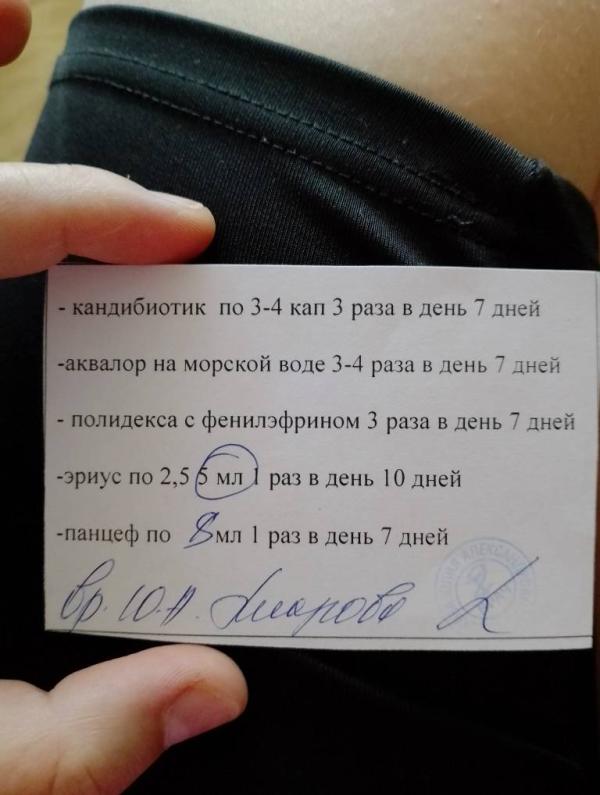 - кандибиотик по 3-4 кап 3 раза в день 7 дней
-аквалор на морской воде 3-4 раза в день 7 дней
- полидекса с фенилэфрином 3 раза в день 7 дней
-эриус по 2,5 5 мл 1 раз в день 10 дней
-панцеф по 8 мл 1 раз в день 7 дней
вр. Ю.А.